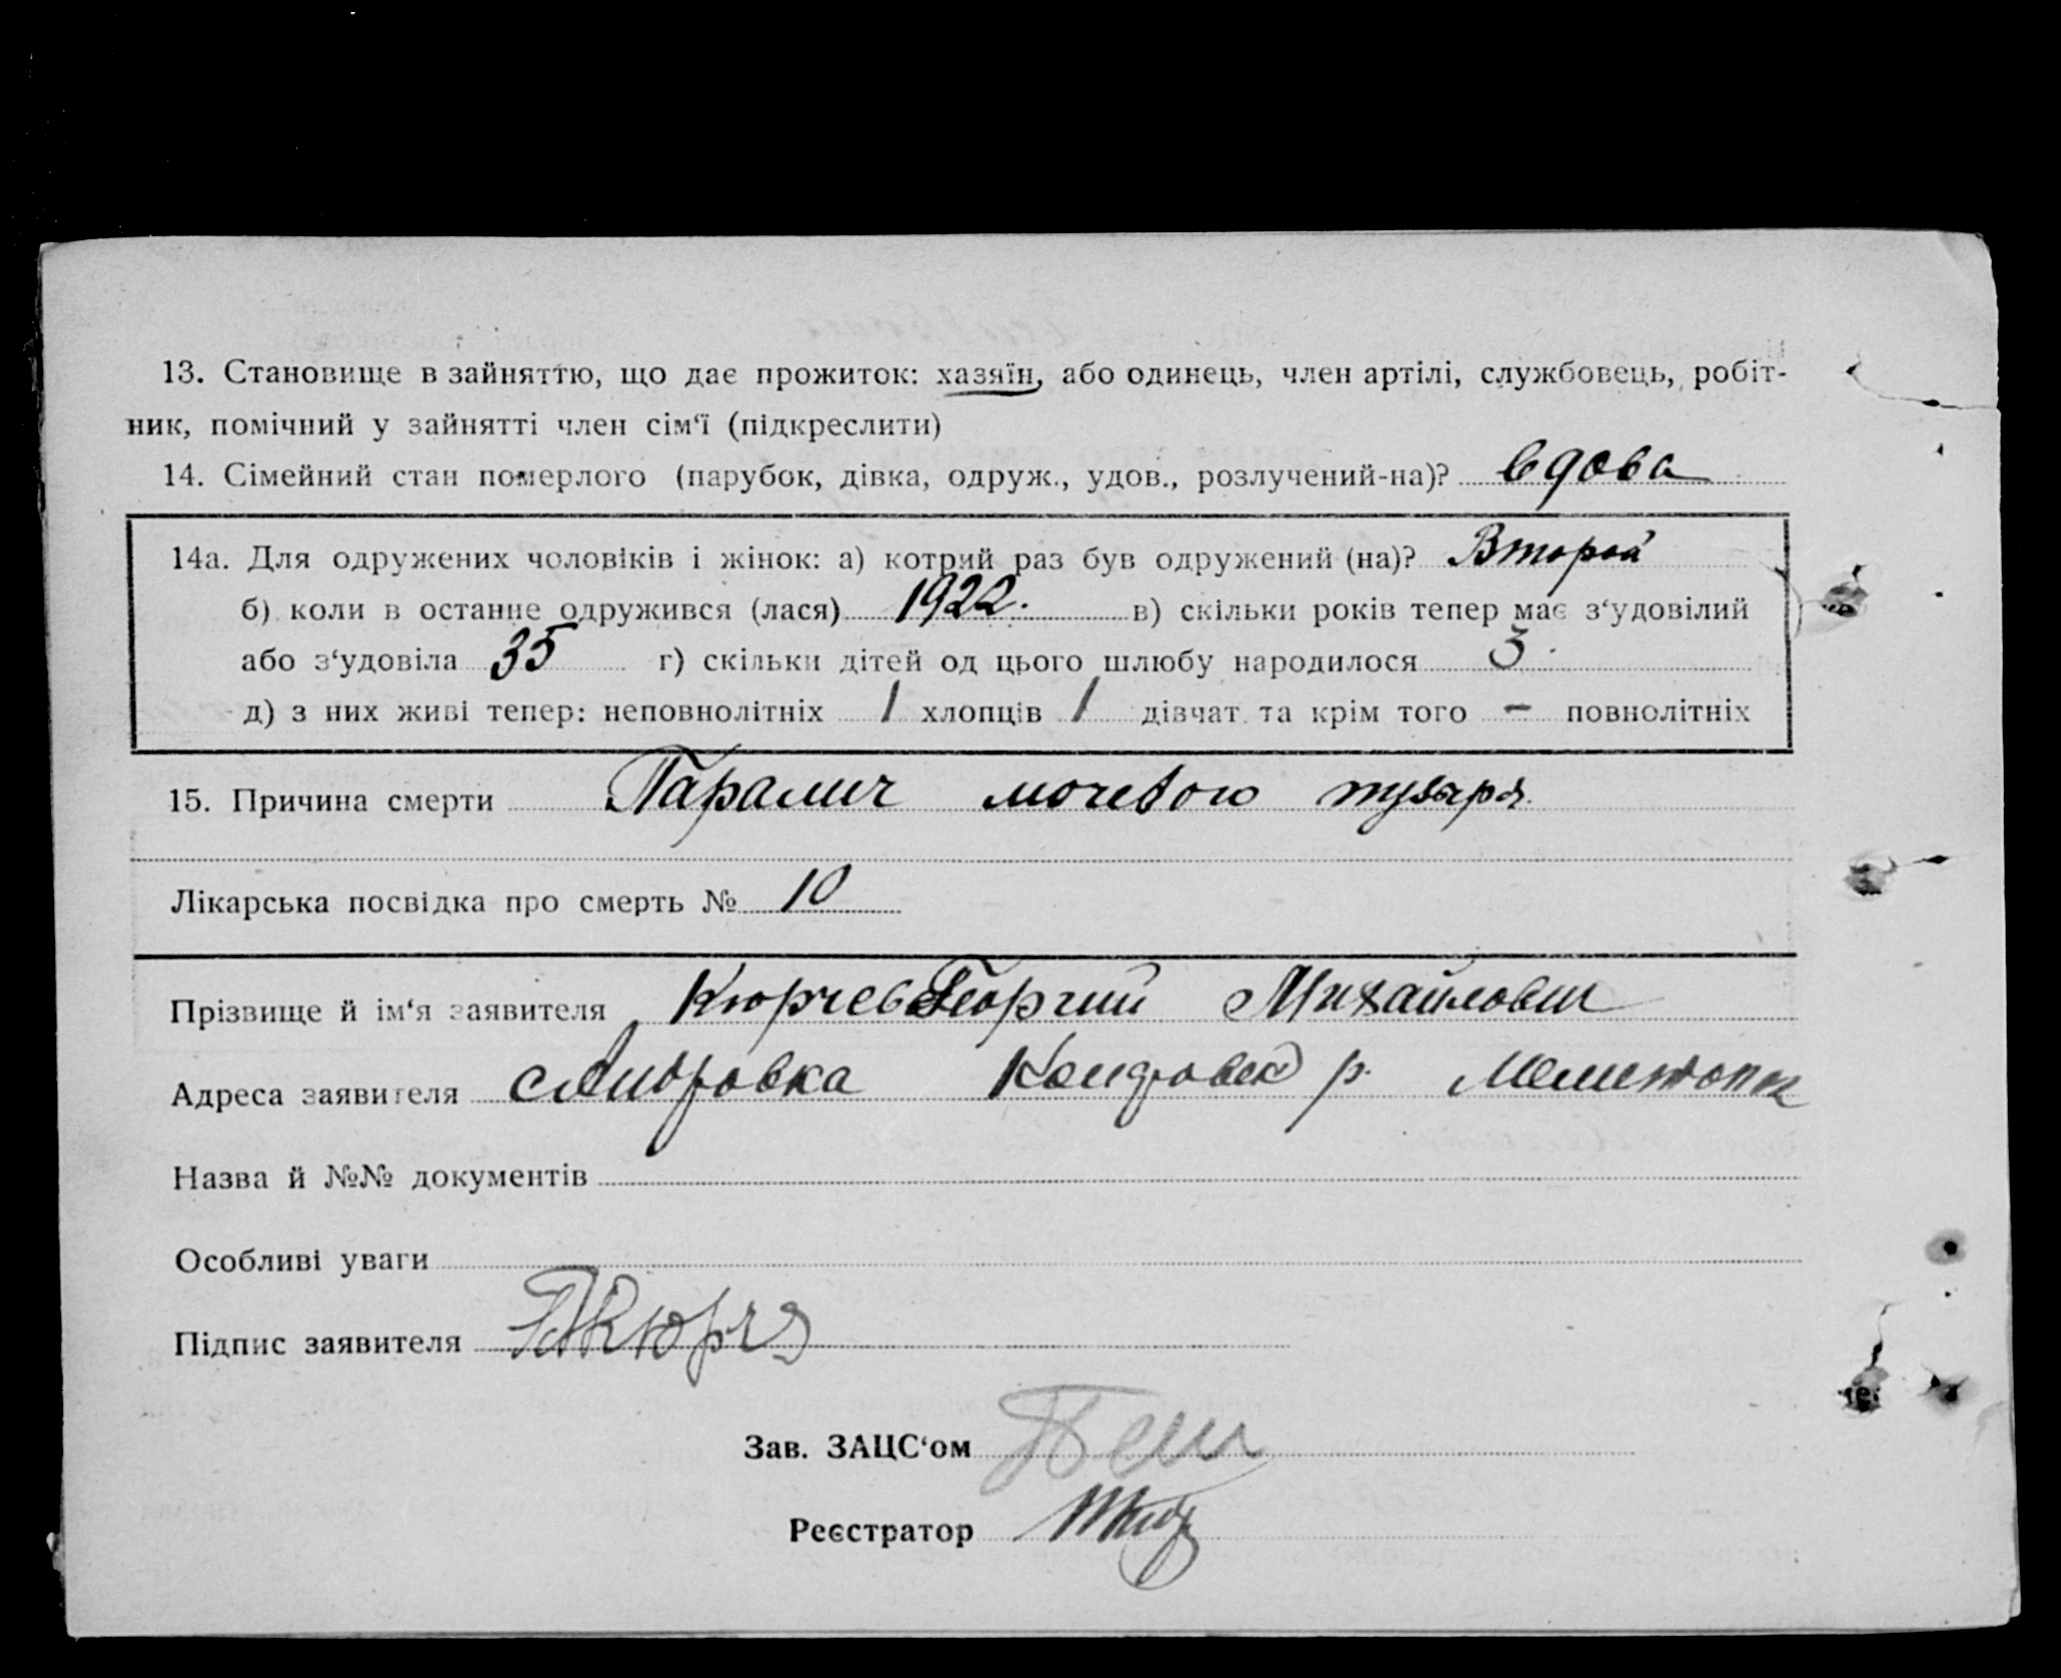 13. Становище в зайняттю, що дає прожиток: хазяїн, або одинець, член артілі, службовець, робіт-
ник, помічний у зайнятті член сім‘ї (підкреслити)
14. Сімейний стан померлого (парубок, дівка, одруж., удов., розлучений-на)? вдова
14а. Для одружених чоловіків і жінок: а) котрий раз був одружений (на)? Второй
б) коли в останнє одружився (лася) 1922. в) скільки років тепер має з‘удовілий
або з‘удовіла 35 г) скільки дітей од цього шлюбу народилося 3.
д) з них живі тепер: неповнолітніх 1 хлопців 1 дівчат та крім того — повнолітніх
15. Причина смерти Паралич мочевого пузыря.
Лікарська посвідка про смерть № 10
Прізвище й ім‘я заявителя Кюрчев Георгий Михайлович
Адреса заявителя р. Мелитоп
Назва й №№ документів
Особливі уваги
Підпис заявителя
Зав. ЗАЦС‘ом
Реєстратор